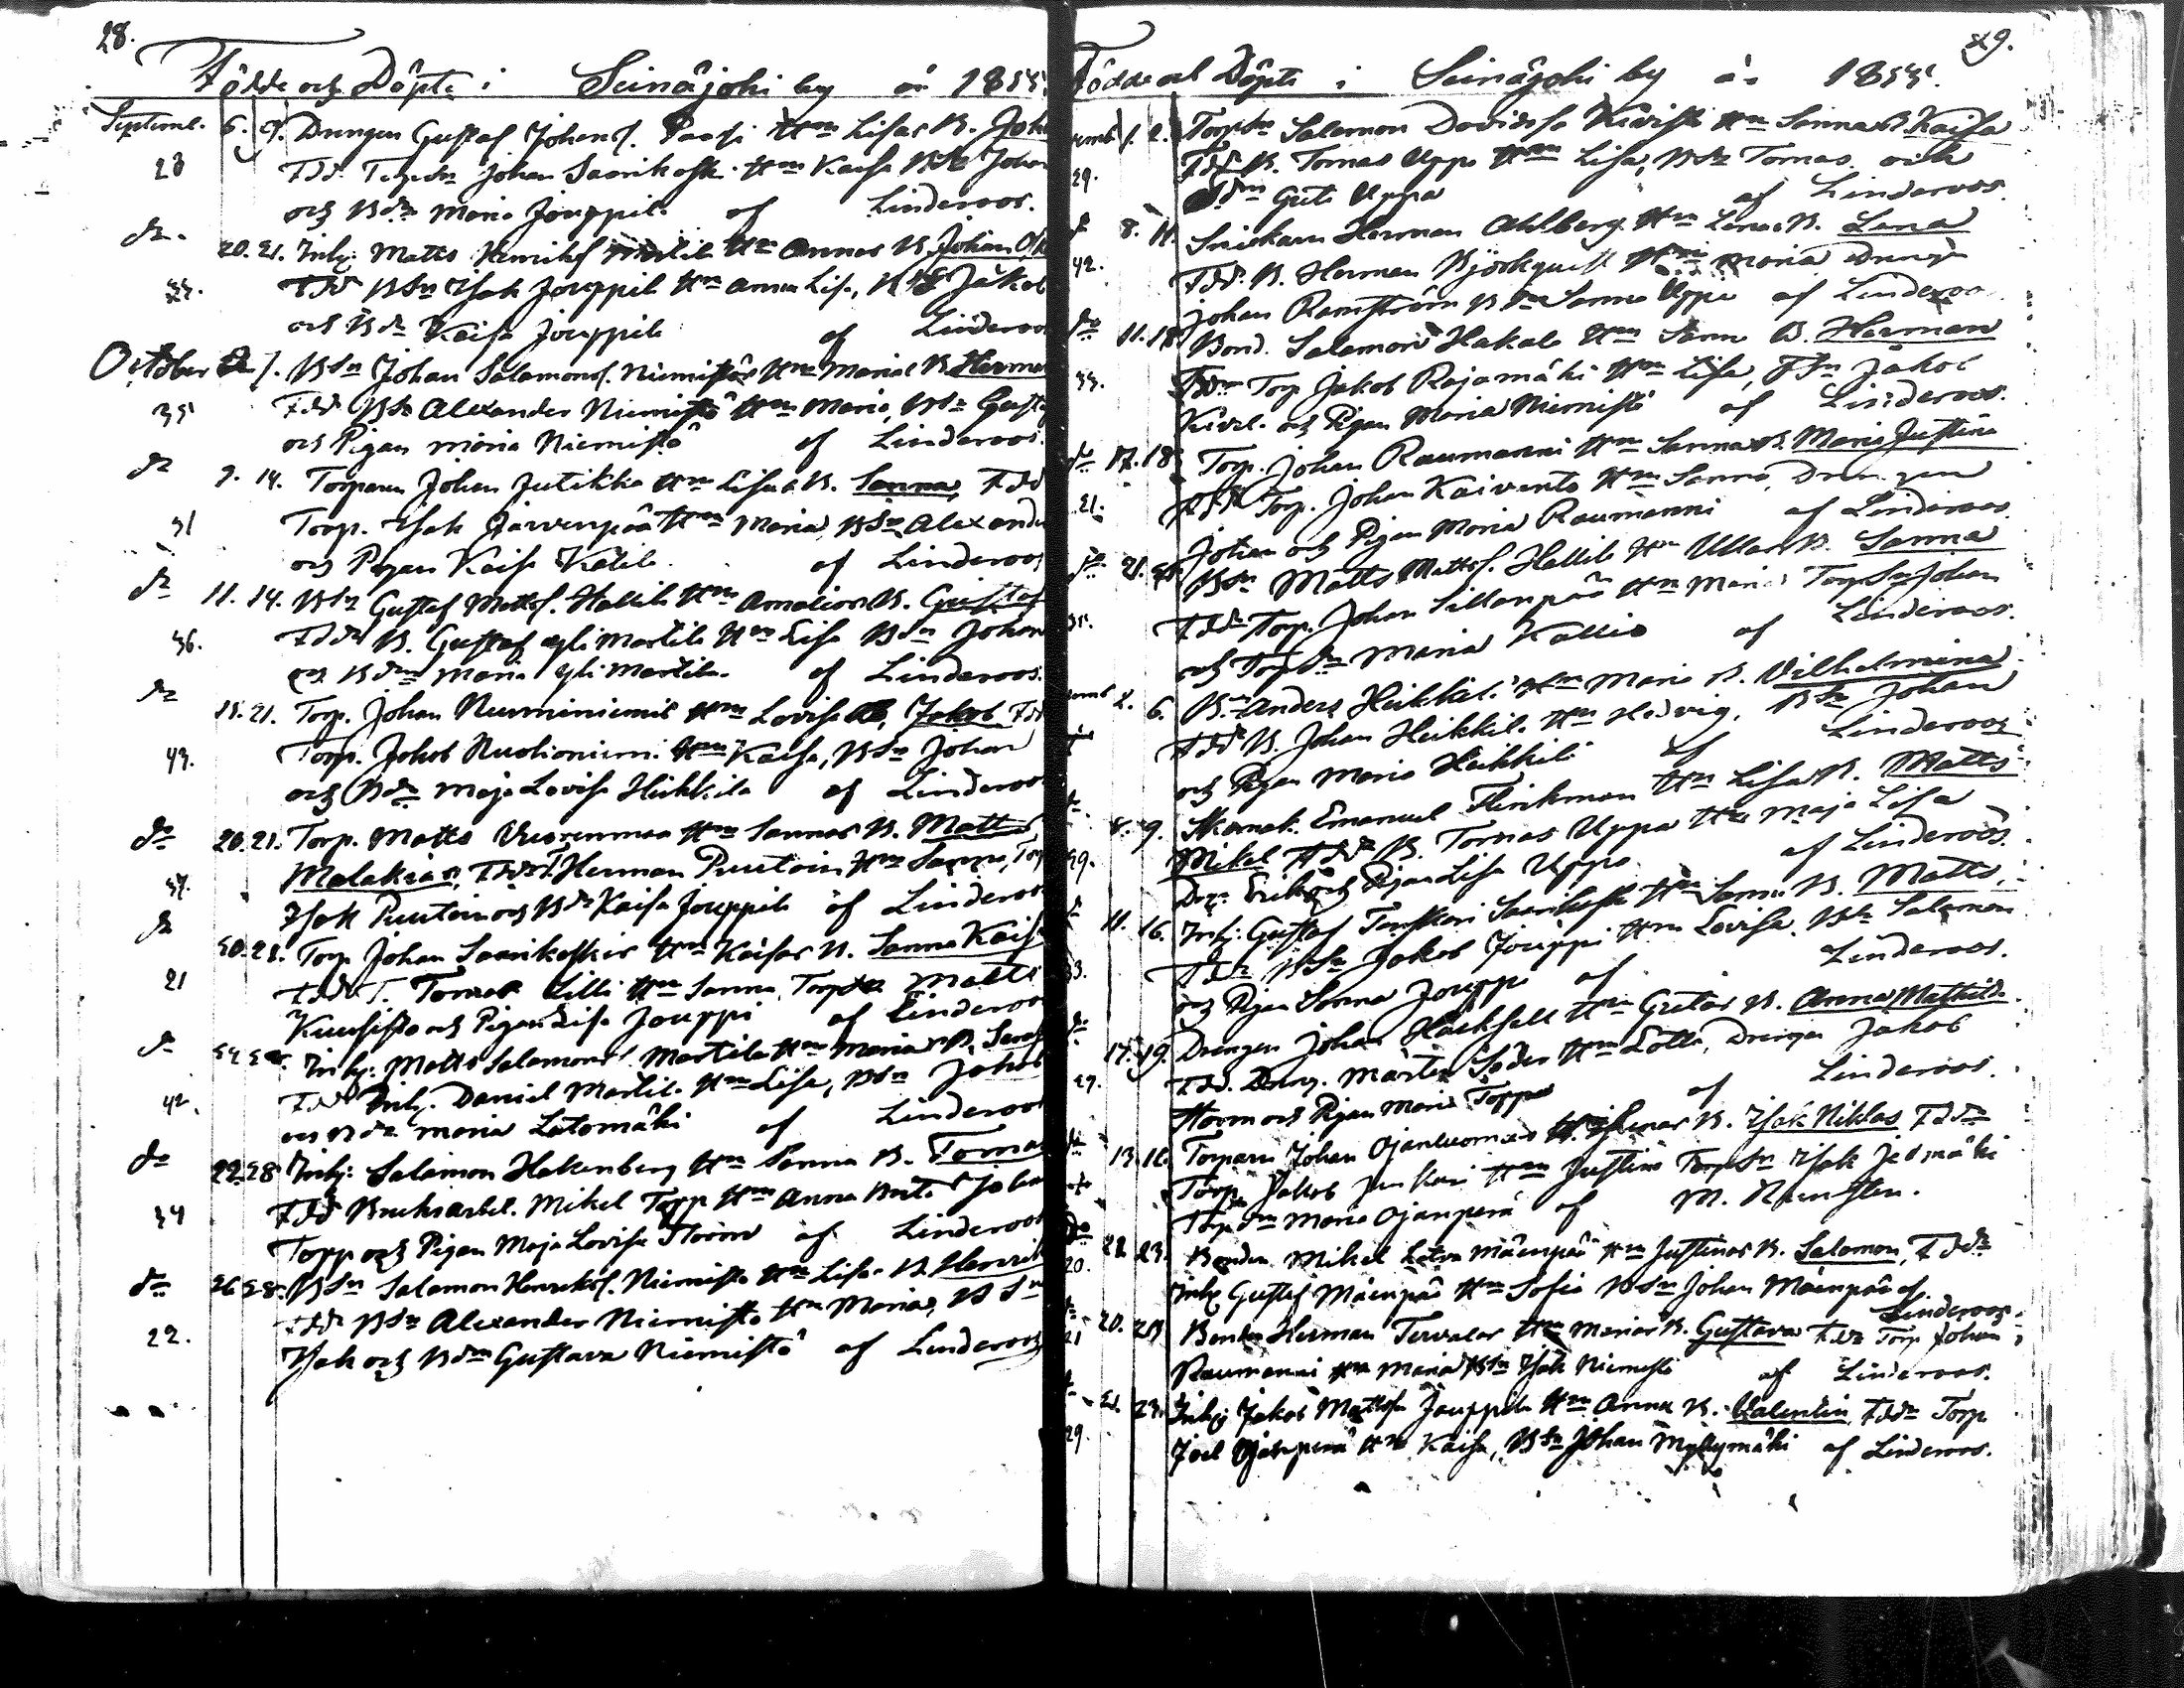 28.
Födde och Döpte i Seinäjoki by år 1855.
Septemb. 6. 9. Drengen Gustaf Johans. Paasi Hm Lisas B. Joh
23 Fdd. Torpsn Johan Saarikoski Hm Kaisa Bsn Johan
och Bdn Maria Jouppila af Linderoos.
do 20. 21. Inhy: Matts Henriks Hm Annas B. Johan
Fdd Bsn Isak Jouppila Hm Anna Lisa, Bsn Jakob
och Bdn Kaisa Jouppila af Linderoos
October Bsn Johan Salamons. Niemistös Hm Marias B. Herman
35 Fdd Bsn Alexander Niemistö Hm Maria, Bsn Gusta
och Pigan Maria Niemistö af Linderoos.
do 9. 14. Torparen Johan Jutikka Hm Lisas B. Sanna, Fdd
31 Torp. Isak Järvenpää Hm Maria, Bsn Alexander
och Pigan Kaisa Katila af Linderoos
do 11. 14. Bsn Gustaf Mattss. Hallila Hm Amalias B. Gustaf
36. Fddn B. Gustaf yli Martila Hm Lisa Bsn Johan
och Bdn Maria yli Martila af Linderoos.
do 15. 21. Torp. Johan Nurminiemis Hm Lovisas B, Jakob Fdd
43. Torp. Jakob Ruotioniemi Hm Kaisa, Bsn Johan
och Bdn Maja Lovisa Heikkila af Linderoos
do 20. 21. Torp. Matts Vuorenmaa Hm Sannas B. Matts
37. Malakias, Fddn T. Herman Puutoin Hm Sanna, Tor
Isak Puutoin och Bdn Kaisa Jouppila af Linderoos
do 20. 28. Torp Johan Saarikoskis Hm Kaisas B. Sanna Kaisa
21 Fdd T. Tomas Lilli Hm Sanna, Torpsn Matts
Kuusisto och Pigan Lisa Jouppi af Linderoos
do Inhy: Matts Salamons Martila Hm Marias B. Seraf
42. Fdd Inhy. Daniel Martila Hm Lisa, Bsn Jakob
och Bdn Maria Latomäki af Linderoos
do 22. 28 Inhy: Salamon Hakenberg Hm Sanna B. Tomas
34 Fdd Bruksarbet. Mikel Topp Hm Anna Brita Johan
Topp och Pigan Maja Lovisa Storm af Linderoos
do 26 28. Bsn Salamon Henriks. Niemistö Hm Lisas B. Henrik
22. Fddn Bsn Alexander Niemistö Hm Maria, Bsn
Isak och Bdn Gustava Niemistö af Linderoos
29.
Födde och Döpte i Seinäjoki by år 1855.
emb 1. 2. Torpsn Salamon Davidss Kivistö Hm Sannas B. Kaisa
29. Fddn B. Tomas Uppa Hm Lisa, Bsn Tomas och
Bdn Greta Uppa af Linderoos.
do 8. 11. Snickaren Herman Ahlberg Hm Lenas B. Lena
42. Fddn B. Herman Björkqvist Hm Maria Drengn
Johan Ramström Bdn Sanna Uppa af Linderoos
do 11. 18 Bond. Salamon Hakala Hm Sanna B. Herman
33. Fddn Torp Jakob Rajamäki Hm Lisa, Tsn Jakob
Kivel. och Pigan Maria Niemistö af Linderoos.
do 17. 18 Torp. Johan Raumanni Hm Sannas B. Maria Justina
21. Fddn Torp. Johan Kaivento Hm Sanna, Drengen
Johan och Pigan Maria Raumanni af Linderoos
do 21. 25. Bsn Matts Mattss. Hallila Hm Ullas B. Sanna
35. Fddn Torp. Johan Sillanpää Hm Maria Torpsn Johan
och Torpdn Maria Kallio af Linderoos.
emb 2. 6. Bsn Anders Heikkilä Hm Maria B. Vilhelmina
Fddn B. Johan Heikkilä Hm Hedvig, Bsn Johan
och Pigan Maria Heikkilä af Linderoos
8. 9. Skomak. Emanuel Flinkman Hm Lisas B. Matts
39. Mikel Fddn B. Tomas Uppa Hm Maja Lisa
Drg. Erik och Pigan Lisa Uppa af Linderoos.
11. 16. Inhy: Gustaf Saarikoski Hm Sannas B. Matts,
33. Fddn Bsn Jakob Jouppi Hm Lovisa, Bsn Salamon
och Pigan Sanna Jouppi af Linderoos.
do 17. 19 Drengen Johan Hacksell Hm Gretas B. Anna Mathilda
29. Fdd. Dreng. Mårten Söder Hm Lotta, Drengen Jakob
Storm och Pigan Maria Topp af Linderoos.
do 13. 16. Torparen Johan Ojanluomas Hm Lenas B. Isak Niklas Fddn
Torp. Jakob Junkari Hm Justina Torpsn Isak Jedmäki
Torpdn Maria Ojanperä af M. Rundsten.
do 22. 23. Bonden Mikel Latva Mäenpää Hm Justinas B. Salamon, Fddn
20. Inhy Gustaf Mäenpää Hm Sofia Bsn Johan Mäenpää af Linderoos.
20. 23. Bonden Herman Tervalas Hm Marias B. Gustava Fddn Torp Johan
21 Raumanni Hm Maria Bsn Isak Niemistö af Linderoos.
21. 23. Inhy Jakob Mattsson Jouppila Hm Anna B. Valentin, Fddn Torp
29. Joel Ojanperä Hm Kaisa, Bsn Johan Myllymäki af Linderoos.